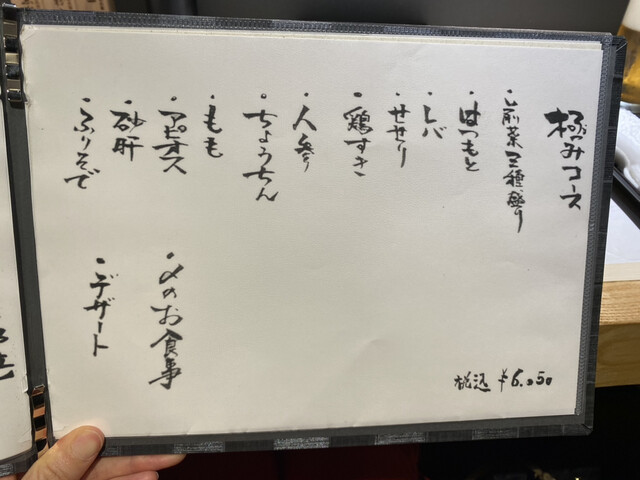 極みコース
・前菜三種盛り
・はつもと
・レバ
・せせり
・鶏すき
・人参
・ちょうちん
・もも
・アピオス
・砂肝
・ふりそで
・〆のお食事
・デザート
税込 ¥6.050